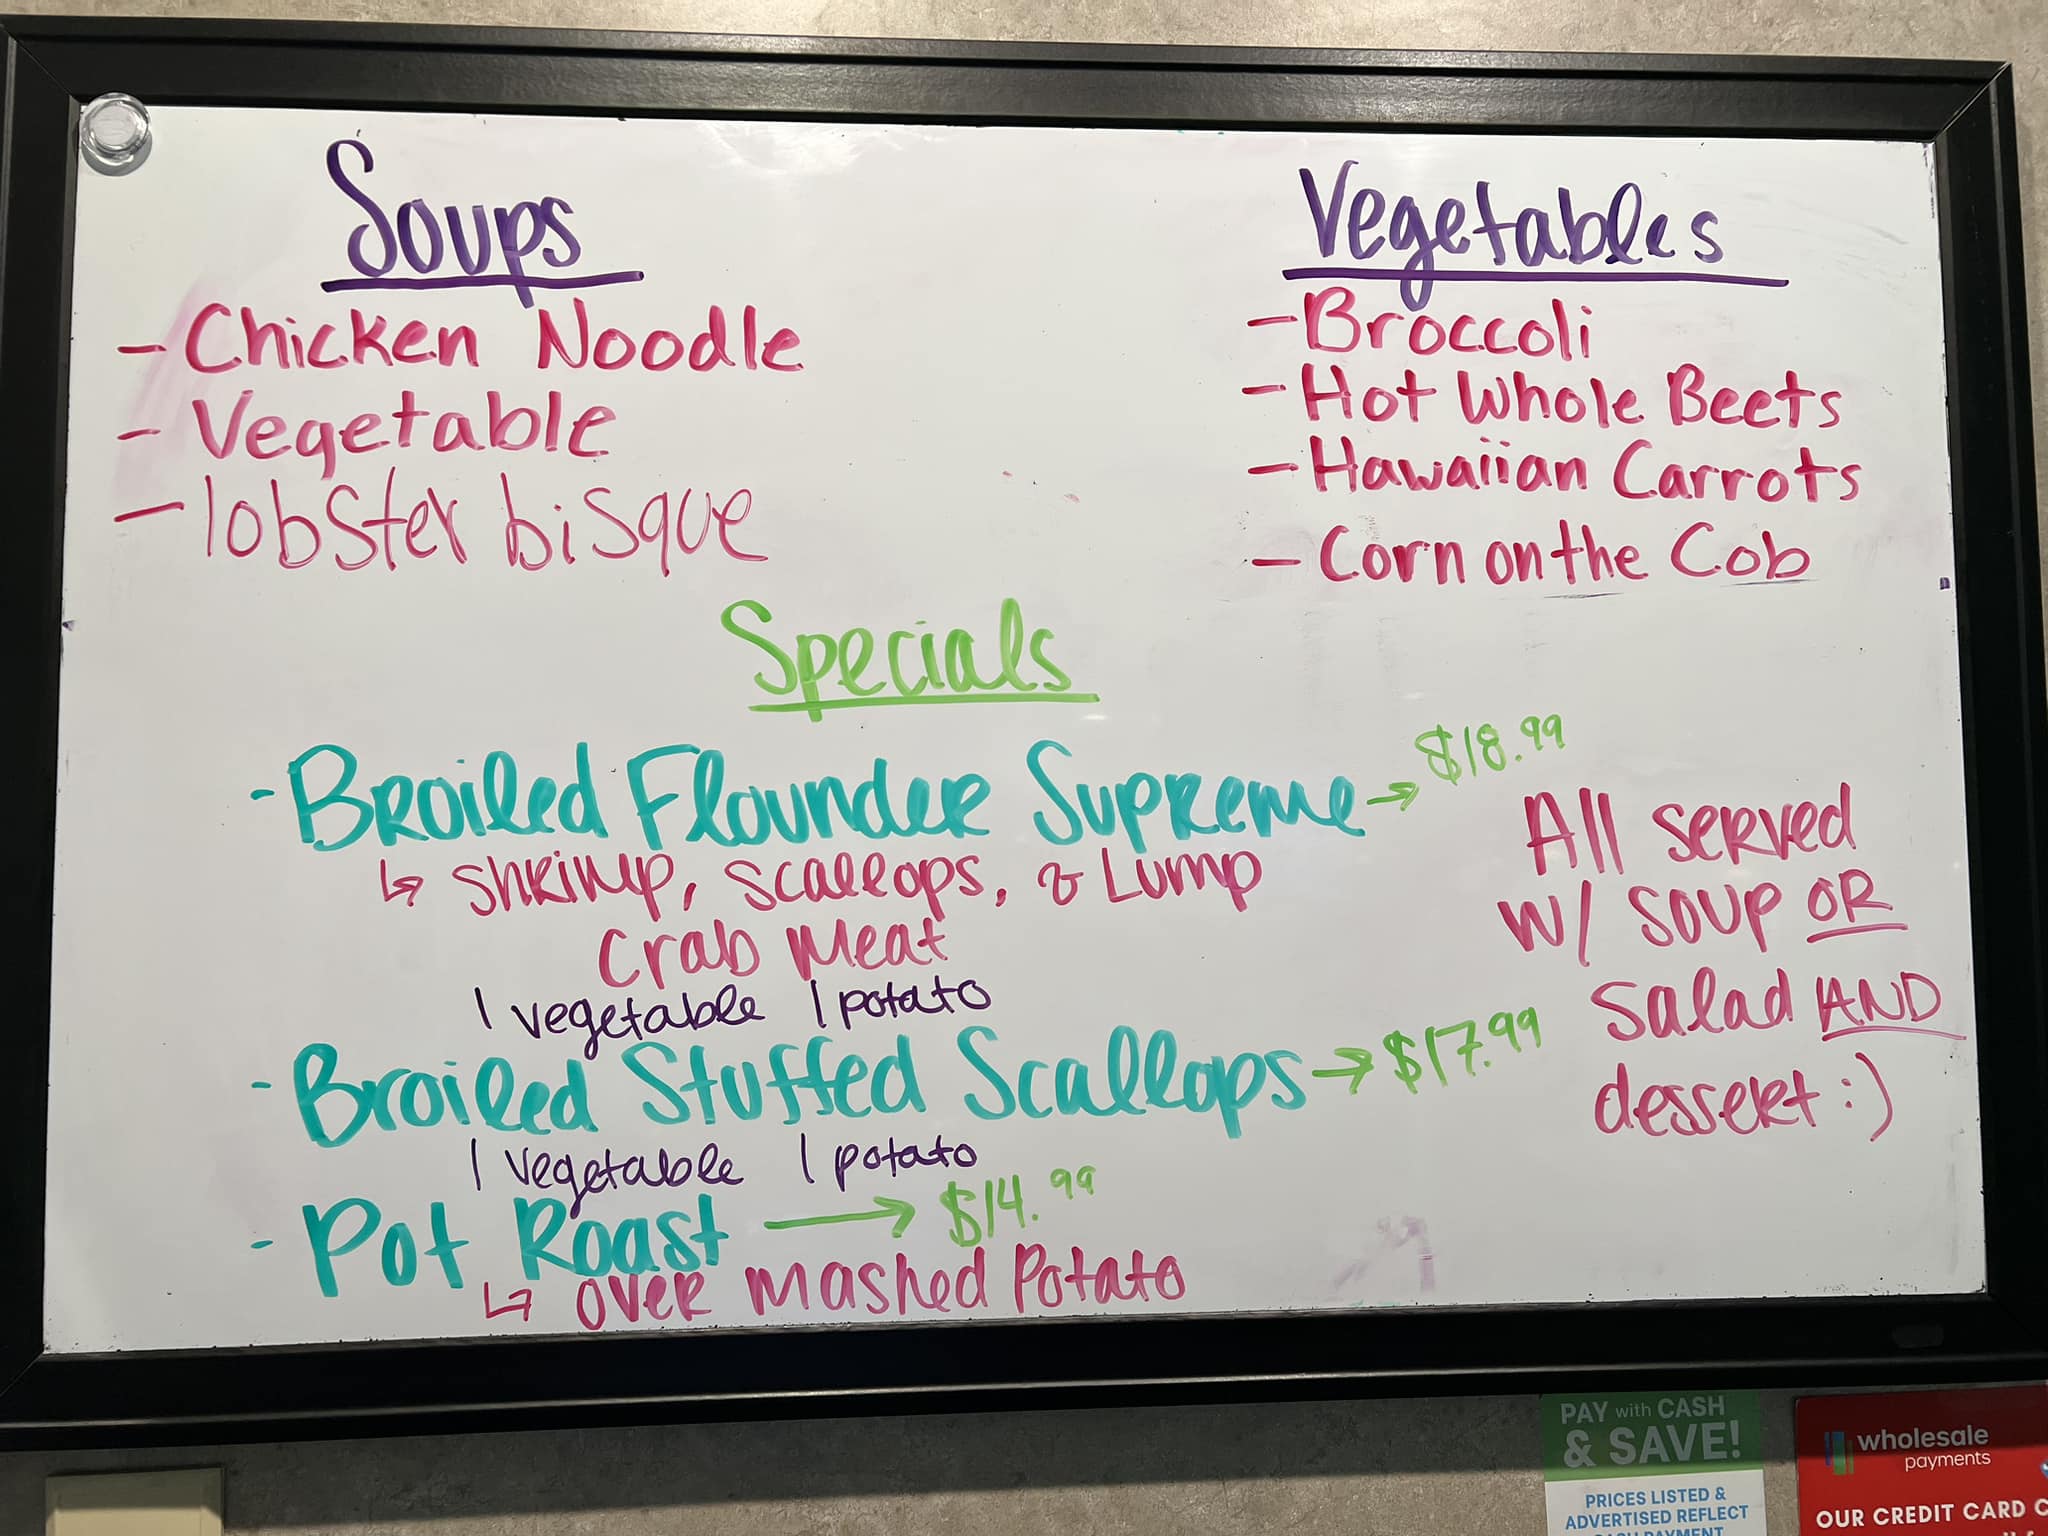 Soups
- Chicken Noodle
- Vegetable
- lobster bisque
Vegetables
- Broccoli
- Hot Whole Beets
- Hawaiian Carrots
- Corn on the Cob
Specials
- Broiled Flounder Supreme → $18.99
↳ shrimp, scallops, & Lump
crab meat
1 vegetable 1 potato
- Broiled Stuffed Scallops → $17.99
1 vegetable 1 potato
- Pot Roast → $14.99
↳ over mashed Potato
All served
w/ soup OR
salad AND
dessert :)
PAY with CASH
& SAVE!
PRICES LISTED &
ADVERTISED REFLECT
wholesale
payments
OUR CREDIT CARD